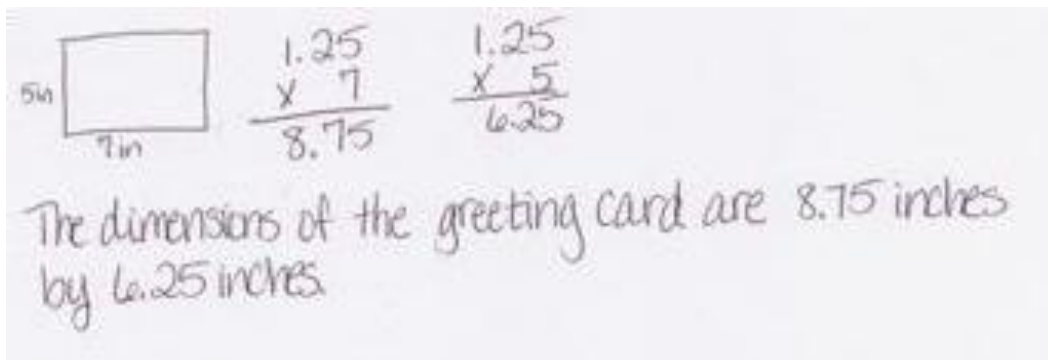 5in
7in
1.25
x 7
8.75
1.25
x 5
6.25
The dimensions of the greeting card are 8.75 inches
by 6.25 inches.